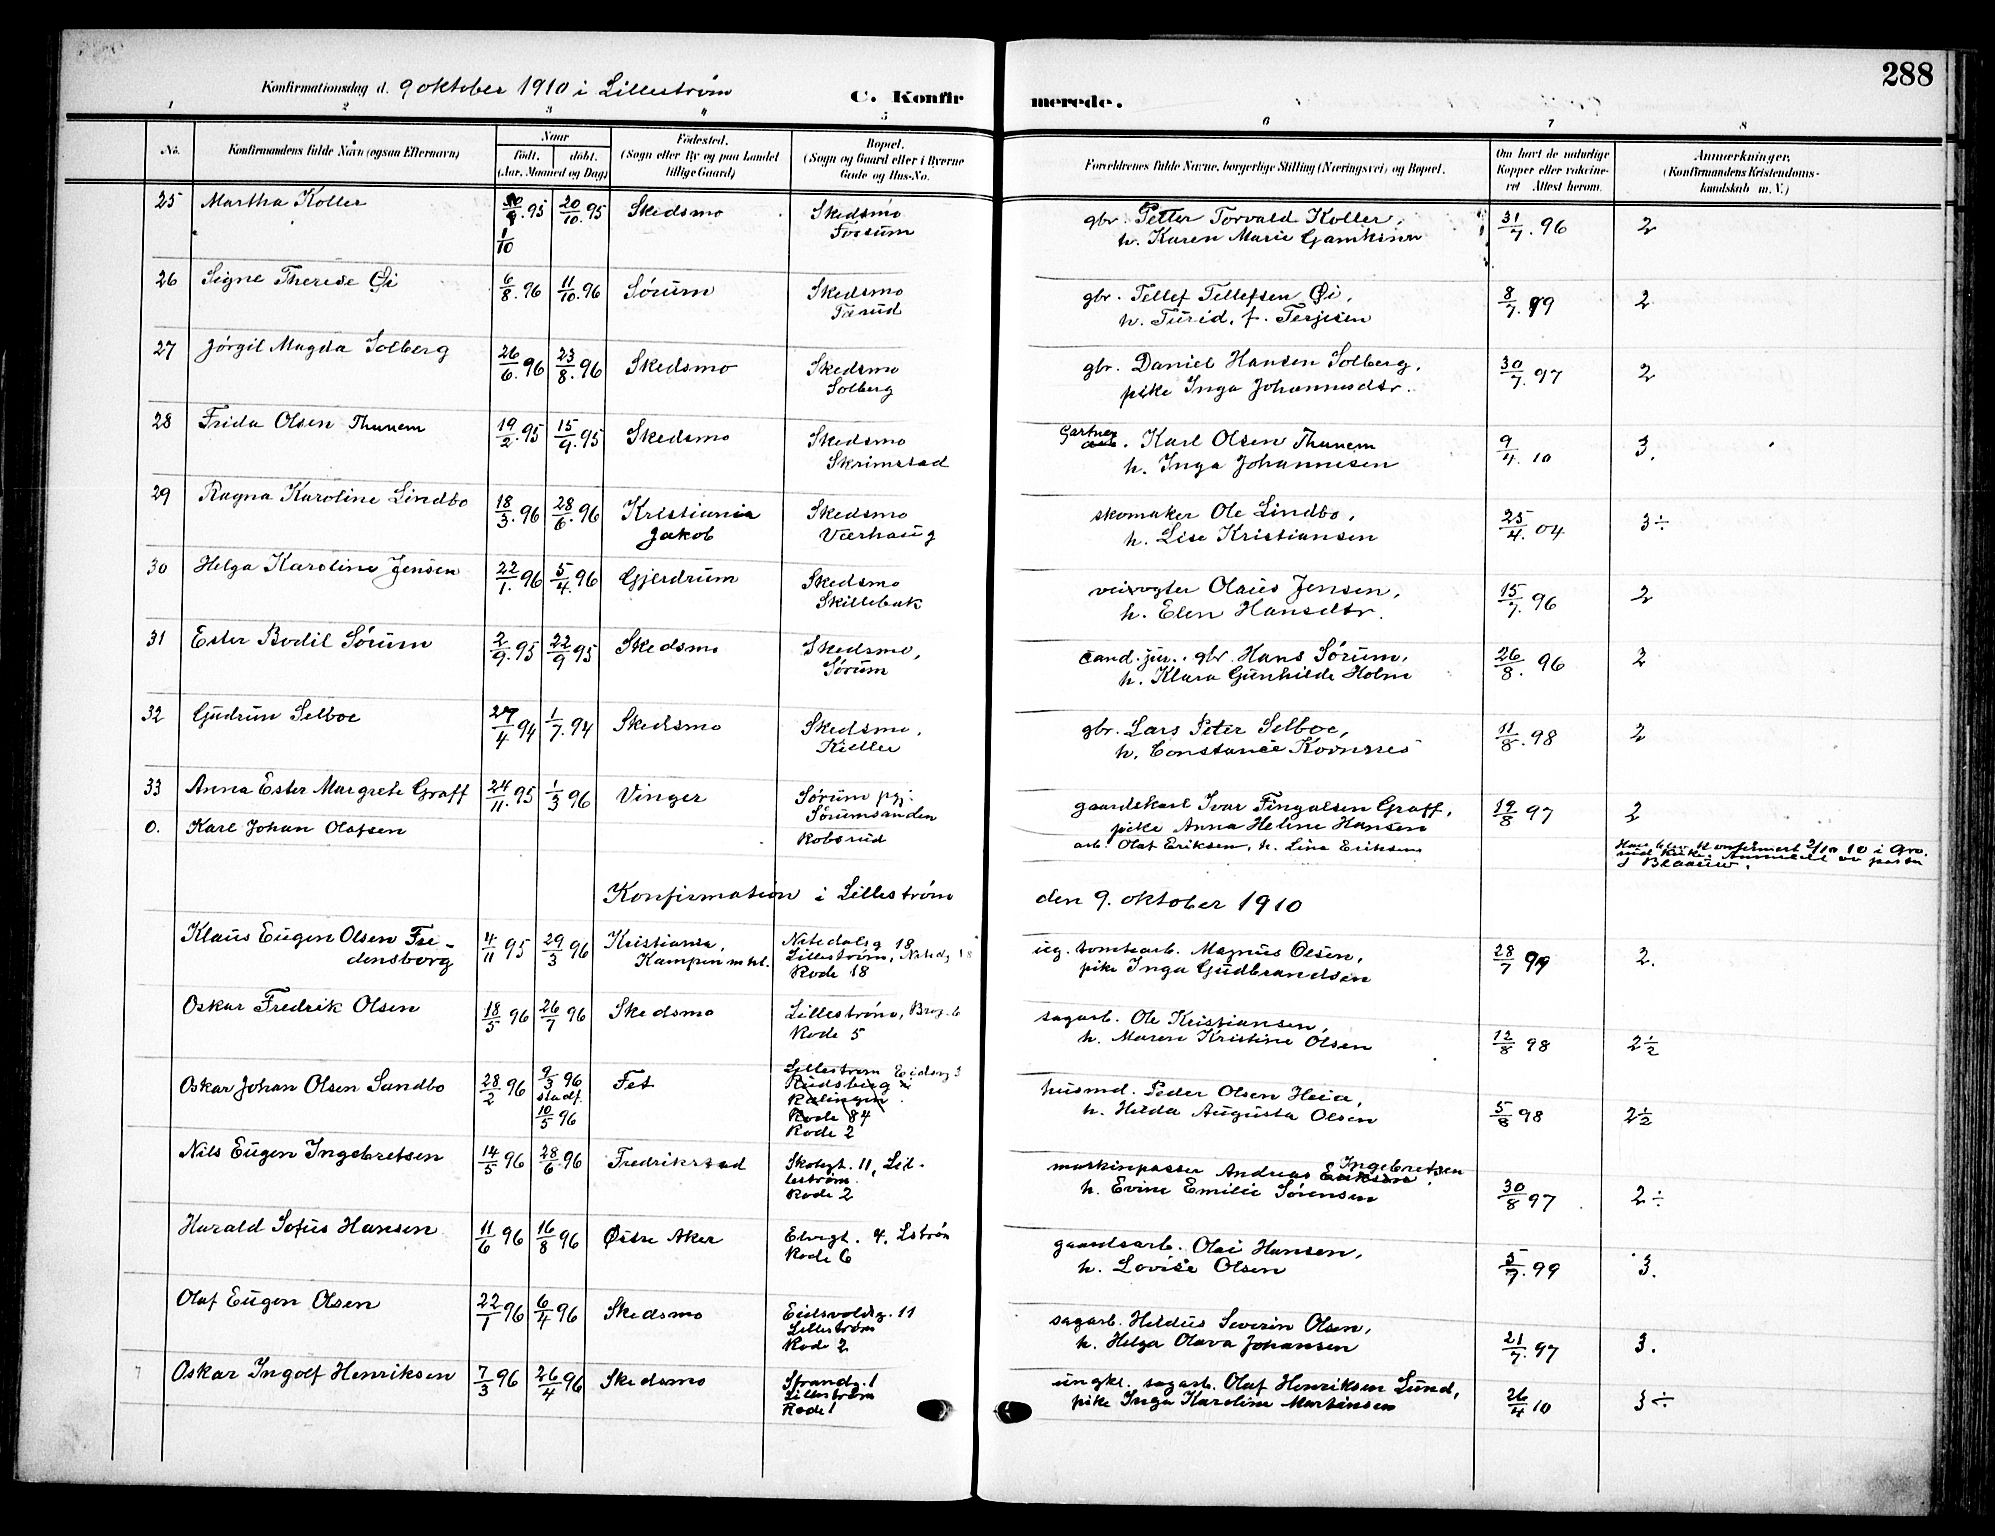 288
Konfirmationsdag d. 9 oktober 1910 i Lillestrøm
C. Konfirmerede.
1 2 3 4 5 6 7 8
No.
Konfirmandens fulde Navn (ogsaa Efternavn)
Naar
født. døbt.
(Aar, Maaned og Dag)
Fødested.
(Sogn eller By og paa Landet
tillige Gaard)
Bopæl.
(Sogn og Gaard eller i Byerne
Gade og Hus-No.
Forældrenes fulde Navne, borgerlige Stilling (Næringsvei) og Bopæl.
Om havt de naturlige
Kopper eller vakcine-
ret. Attest herom.
Anmerkninger,
(Konfirmandens Kristendoms-
kundskab m. V.)
25 Martha Koller 30/9.95 20/10.95 Skedsmo Skedsmo gbr. Petter Torvald Koller, 31/7.96 2
1/10 Fossum h. Karen Marie
26 Signe Therese Øi 6/8.96 11/10.96 Sørum Skedsmo gbr. Tellef Tellefsen Øi, 8/7.99 2
Tærud h. Turid, f. Terjesen
27 Jørgil Magda Solberg 26/6.96 23/8.96 Skedsmo Skedsmo gbr. Daniel Hansen Solberg, 30/7.97 2
Solberg pike Inga Johannesdtr.
28 Frida Olsen Thunem 19/2.95 15/9.95 Skedsmo Skedsmo Gartner Karl Olsen Thunem 9/4.10 3.
Skrimstad h. Inga Johannesen
29 Ragna Karoline Lindbo 18/3.96 28/6.96 Kristiania Skedsmo skomaker Ole Lindbo, 25/4.04 3÷
Jakob Værhaug h. Lise Kristiansen
30 Helga Karoline Jensen 22/1.96 5/4.96 Gjerdrum Skedsmo veivogter Olaus Jensen, 15/7.96 2
Skillebæk h. Elen Hansdtr.
31 Ester Bodil Sørum 2/9.95 22/9 95 Skedsmo Skedsmo, cand. jur., gbr. Hans Sørum, 26/8.96 2
Sørum h. Klara Gunhilde Holm
32 Gudrun Selboe 27/4 94 1/7.94 Skedsmo Skedsmo, gbr. Lars Peter Selboe, 11/8.98 2
Kjeller h. Constance
33 Anna Ester Margrete Graff 24/11.95 1/3 96 Vinger Sørum pgj. gaardskarl Ivar Fingalsen Graff, 19/8 97 2
Sørumsanden pike Anna Heline Hansen
0. Karl Johan Olafsen Robsrud arb. Olaf Eriksen, h. Lina Eriksen Han blev konfirmert 2/10 10 i Gro-
rud kirke. Anmeldt av pastor
J Blaauw.
Konfirmation i Lillestrøm den 9. oktober 1910
Klaus Eugen Olsen Fre- 4/11 95 29/3 96 Kristiania, Nitedalsg 18 ug. tomtearb. Magnus Olsen, 28/7 99 2.
densborg Kampen mht. Lillestrøm, Nitedg 18 pike Inga Gudbrandsen
Rode 18
Oskar Fredrik Olsen 18/5 96 26/7 96 Skedsmo Lillestrøm, Brog. 6 sagarb. Ole Kristiansen, 12/8 98 2½
Rode 5 h. Maren Kristine Olsen
Oskar Johan Olsen Sandbo 28/2 96 9/3 96 Fet Lillestrøm Eidsvg 3 husmd. Peder Olsen Heia, 5/8 98 2½
stadf. Rudsberg i h. Hilda Augusta Olsen
10/5 96 Rælingen.
Rode 84
Rode 2
Nils Eugen Ingebretsen 14/5 96 28/6.96 Fredrikstad Skolegt. 11, Lil- maskinpasser Andreas Eriksen Ingebretsen 30/8 97 2÷
lestrøm. h. Evine Emilie Sørensen
Rode 2
Harald Sofus Hansen 11/6 96 16/8 96 Østre Aker Elvegt. 4, Lstrøm gaardsarb. Olai Hansen, 5/7.99 3.
Rode 6 h. Lovise Olsen
Olaf Eugen Olsen 22/1 96 6/4 96 Skedsmo Eidsvoldsg. 11 sagarb. Hildus Severin Olsen, 21/7.97 3.
Lillestrøm h. Helga Olava Johansen
Rode 2
7 Oskar Ingolf Henriksen 7/3 96 26/4 96 Skedsmo Strandg. 1 ungkl. sagarb. Olaf Henriksen Lund, 26/4 10 3÷
Lillestrøm pike Inga Karoline Martinsen
Rode 1